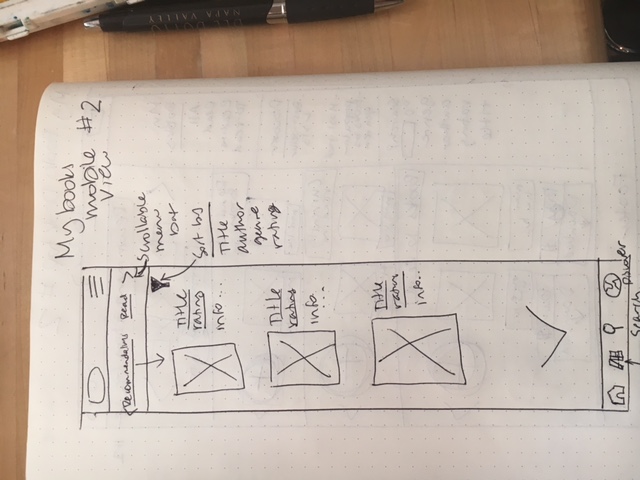 My books
mobile #2
view
Recommendations Read
Scrollable
menu
bar
Sort by
Title
author
genre
rating
Title
rating
info...
Title
rating
info...
Title
rating
info..
Discover
Search
NAPA VALLEY